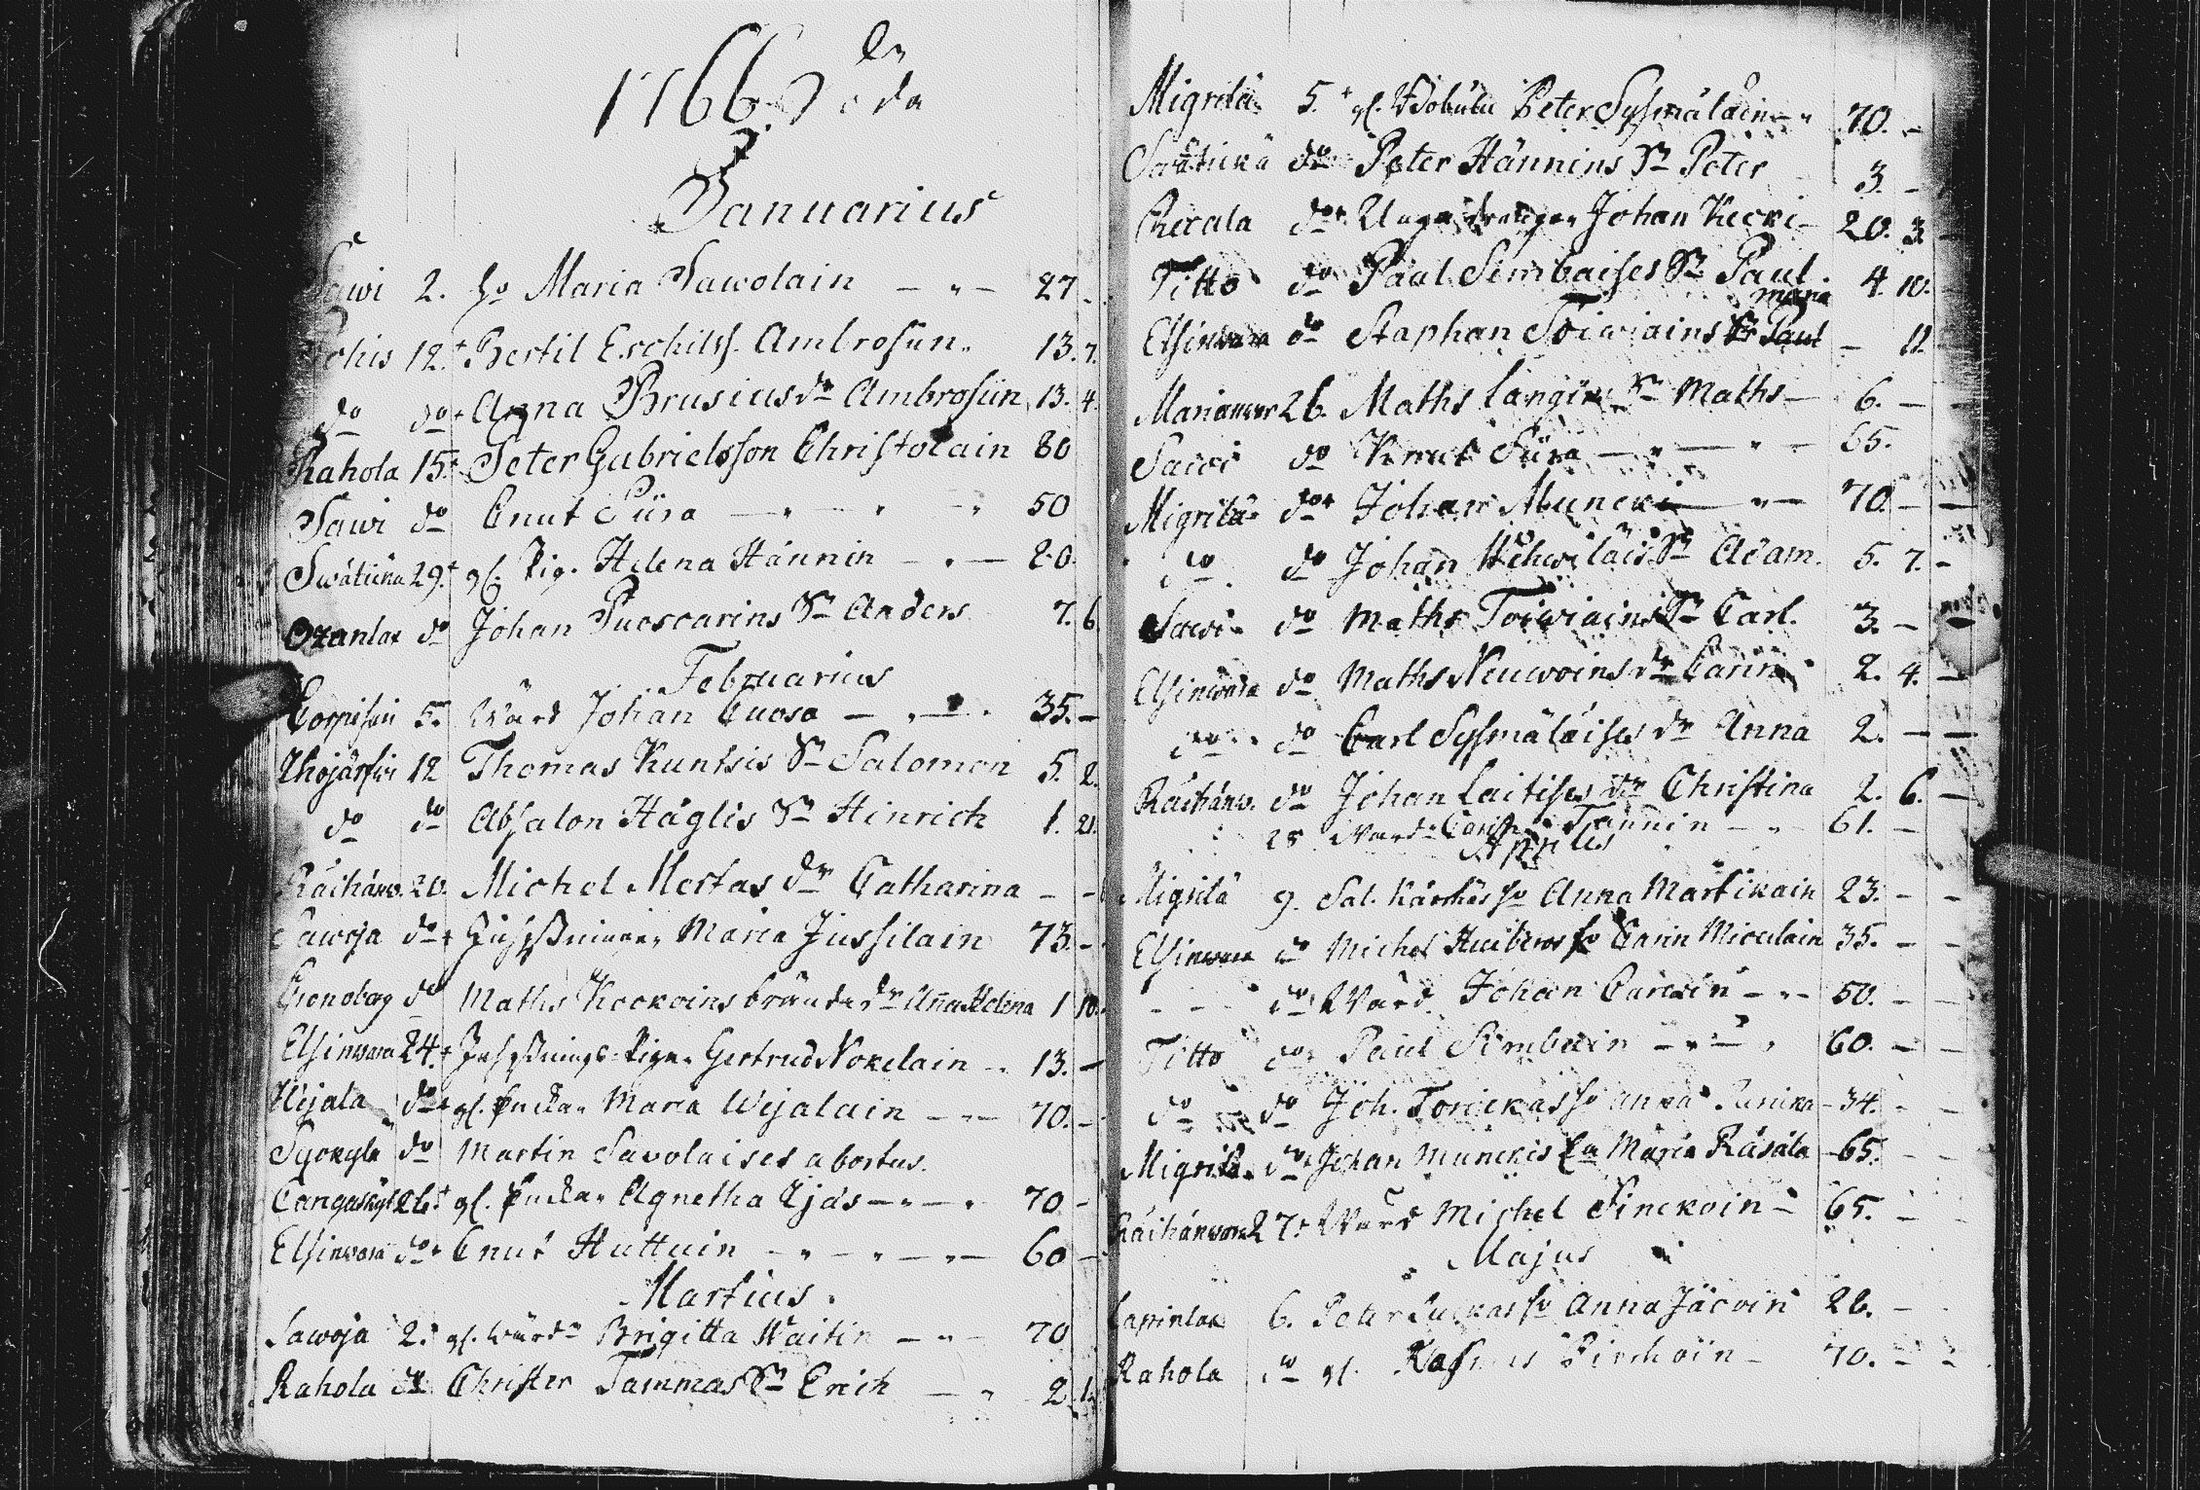 1766 Döda
Januarius
Sawi 2. ho Maria Sawolain — " — 27 -
Pohis 12. + Bertil Erchilss. Ambrosün. 13. 7.
do do + Anna Brusius dr Ambrosiin 13. 4.
Rahola 15. + Peter Gabrielsson Christolain 80
Sawi do Cnut Siira — " — " — " 50
Swätickä 29. + gl. Pig. Helena Hännin — " — 80
Oranlax do Johan Puoscarins Sn Anders 7. 6
Februarius
Corpisari 5. Wärd Johan Cuosa — " — " 35. —
Ihojärfwi 12 Thomas Kuntsis Sn Salomon 5. 2.
do do Absalon Häglis Sn Hinrich 1. 21.
Räihänw. 20. Michel Mertas dr Catharina — -
Sawoja do + Inhysninnan Maria Jussilain 73. -
Cronoborg do Maths Kockoins brända dr Aña Helena 1 10.
Elsinwara 24. + Inhysnings-Pigan Gertrud Nokelain " 13. —
Wejala do + gl. Enckan Maria Wejalain — " — 70. -
Syokylä do Martin Savolaises abortus.
Cangaskylä 26. + gl. Enckan Agnetha Ejäs — " — " 70 -
Elsinwara do + Cnut Huttuin — " — " — " — 60 —
Martius.
Sawoja 2. gl. wärd Brigitta Waitin — " — 70
Rahola do Christer Tammas Sn Erich — " 2. 1.
Migrilä 5. + gl. Peter Sysmäläin — " 70. —
Swätickä do Peter Hännins Sn Peter 3. —
Recala do + Unga drängen Johan Kecki — 20. 3. —
Titto do Paul Simbaises Sn Paul. 4. 10.
Maria
Elsinwara do Staphan Toiwiains Sn Paul — 11.
Marianwar 26. Maths Langin Sn Maths — 6. — —
Sawi do Knut Siira — " — " — 65.
Migrilä do + Johan Muncki — " — 70. — —
do do Johan Wehwiläis Sn Adam. 5. 7. -
Sawi do Maths Toiwiains Sn Carl. 3. — -
Elsinwara do Maths Neuwoins dr Carin 2. 4. —
do do Carl Sysmäläises dr Anna 2. — —
Räihänw. do Johan Laitises dr Christina 2. 6. —
28 Wärd Tannin — " — 61. —
Aprilis
Migrilä 9. Sal. Kärkäs ho Anna Martikain 23. - -
Elsinwara do Michel ho Carin Miculain 35. - -
do + Wärd Johan Carwin — " — 50. — —
Titto do + Paul Simbain — " — " 60. — —
do do Joh. Torickas ho Anna 34. - -
Migrilä do + Johan Munckis Ea Maria Räsälä — 65. - -
Räihänwara 27. + Wärd Michel Sinckoin — 65. — -
Majus
Lapinlax 6. Peter Puckas ho Anna Jäcoin 26. —
Rahola do gl. Rasmus Pirchöin — 70. — -